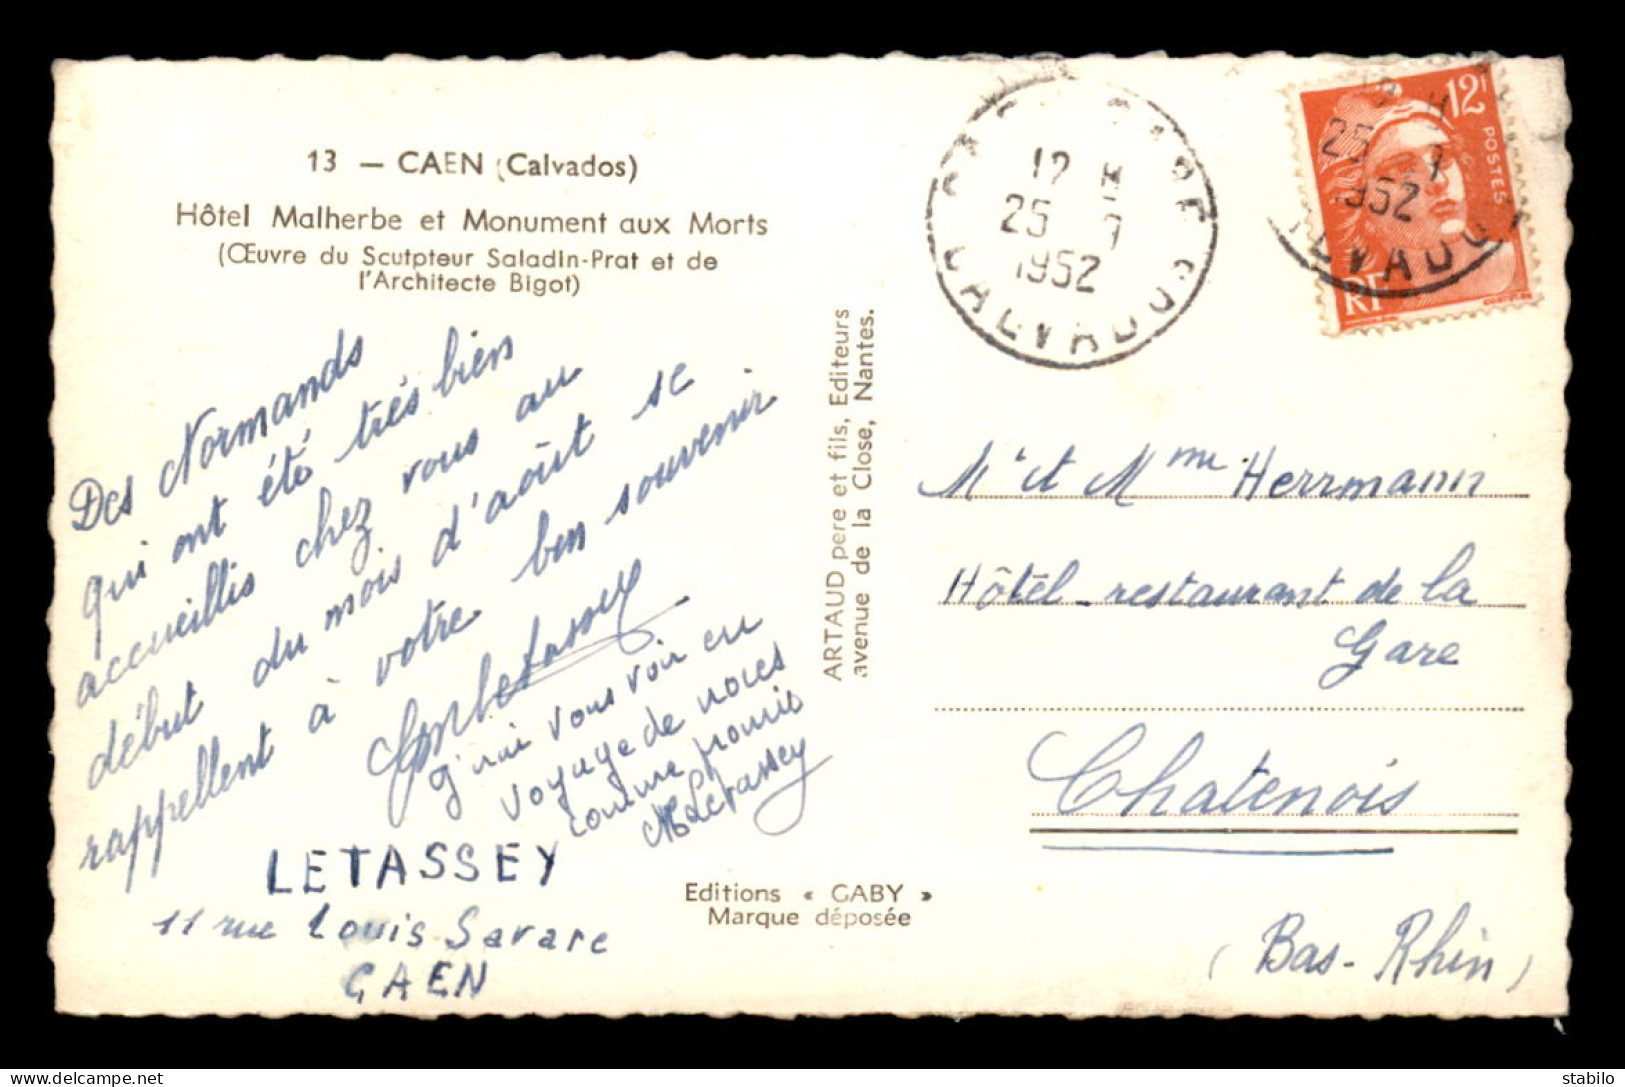 13 — CAEN (Calvados)
Hôtel Malherbe et Monument aux Morts
(Œuvre du Scutpteur Saladin-Prat et de
l'Architecte Bigot)
Des Normands
qui ont été très bien
accueillis chez vous au
début du mois d'août se
rappellent à votre bon souvenir
j'irai vous voir en
voyage de noces
comme promis
M Letassey
LETASSEY
11 rue Louis Savare
CAEN
Editions « GABY »
Marque déposée
ARTAUD pere et fils, Editeurs
avenue de la Close, Nantes.
12 H
25 7
1952
CALVADOS
12F
POSTES
RF
25 7
1952
Mr et Mme Herrmann
Hôtel-restaurant de la
Gare
Chatenois
(Bas-Rhin)
delcampe.net
stabilo